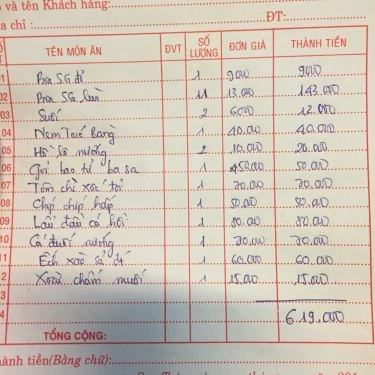 và tên Khách hàng:
ịa chỉ: ĐT:
TÊN MÓN ĂN ĐVT SỐ LƯỢNG ĐƠN GIÁ THÀNH TIỀN
01 Bia SG đỏ 1 9.000 9.000
02 Bia SG lùn 11 13.000 143.000
03 Suối 2 6.000 12.000
04 Nem 1 40.000 40.000
05 nướng 2 10.000 20.000
06 Gỏi bao tử ba sa 1 50.000
07 Tôm chỉ xào tỏi 1 70.000 70.000
08 Chíp chíp hấp 1 50.000 50.000
09 Lẩu đầu cá hồi 1 80.000 80.000
10 Cá đuối nướng 1 70.000 70.000
11 Ếch xào sả ớt 1 60.000 60.000
2 Xoài chấm muối 1 15.000 15.000
3
4 619.000
TỔNG CỘNG:
hành tiền(Bằng chữ):